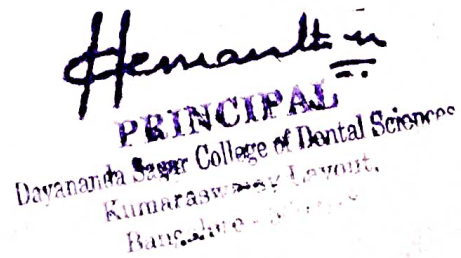 Hemanth
PRINCIPAL
Dayananda Sagar College of Dental Sciences
Kumaraswamy Layout,
Bangalore -